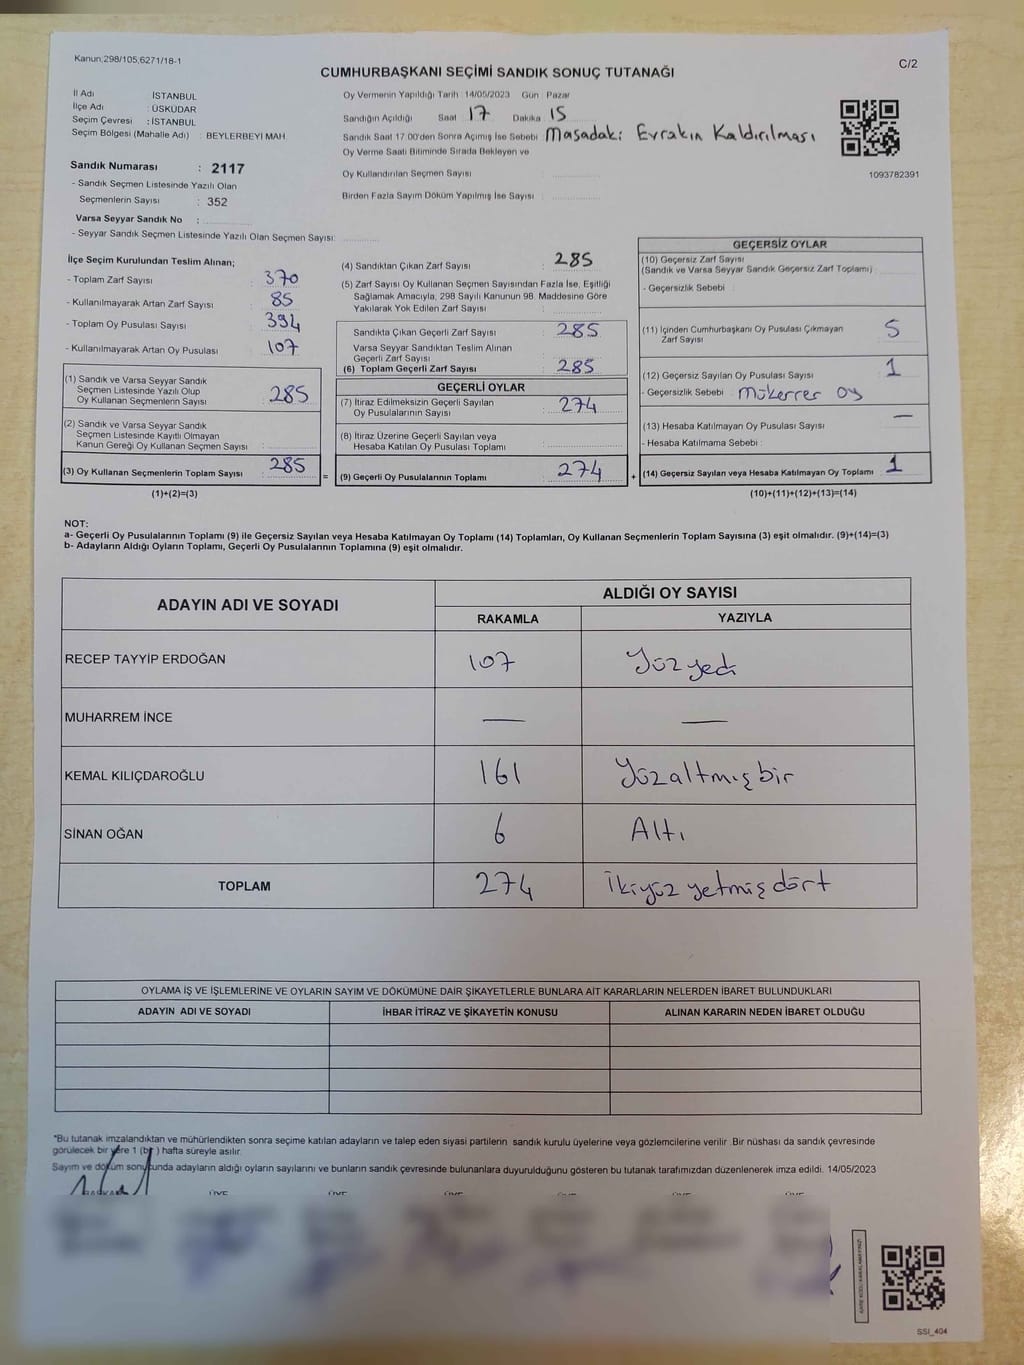 Kanun;298/105,6271/18-1
C/2
CUMHURBAŞKANI SEÇİMİ SANDIK SONUÇ TUTANAĞI
İl Adı İSTANBUL
İlçe Adı : ÜSKÜDAR
Seçim Çevresi : İSTANBUL
Seçim Bölgesi (Mahalle Adı) : BEYLERBEYİ MAH
Sandık Numarası : 2117
- Sandık Seçmen Listesinde Yazılı Olan
Seçmenlerin Sayısı : 352
Varsa Seyyar Sandık No :
- Seyyar Sandık Seçmen Listesinde Yazılı Olan Seçmen Sayısı:
Oy Vermenin Yapıldığı Tarih :14/05/2023 Gün : Pazar
Sandığın Açıldığı Saat 17 Dakika 15
Sandık Saat 17.00'den Sonra Açımış İse Sebebi : Masadaki Evrakın Kaldırılması
Oy Verme Saati Bitiminde Sırada Bekleyen ve
Oy Kullandırılan Seçmen Sayısı :
Birden Fazla Sayım Döküm Yapılmış İse Sayısı :
1093782391
İlçe Seçim Kurulundan Teslim Alınan;
- Toplam Zarf Sayısı : 370
- Kullanılmayarak Artan Zarf Sayısı : 85
- Toplam Oy Pusulası Sayısı : 394
- Kullanılmayarak Artan Oy Pusulası : 107
(1) Sandık ve Varsa Seyyar Sandık
Seçmen Listesinde Yazılı Olup
Oy Kullanan Seçmenlerin Sayısı : 285
(2) Sandık ve Varsa Seyyar Sandık
Seçmen Listesinde Kayıtlı Olmayan
Kanun Gereği Oy Kullanan Seçmen Sayısı :
(3) Oy Kullanan Seçmenlerin Toplam Sayısı : 285
(1)+(2)=(3)
=
(4) Sandıktan Çıkan Zarf Sayısı : 285
(5) Zarf Sayısı Oy Kullanan Seçmen Sayısından Fazla İse, Eşitliği
Sağlamak Amacıyla, 298 Sayılı Kanunun 98. Maddesine Göre
Yakılarak Yok Edilen Zarf Sayısı :
Sandıkta Çıkan Geçerli Zarf Sayısı : 285
Varsa Seyyar Sandıktan Teslim Alınan
Geçerli Zarf Sayısı :
(6) Toplam Geçerli Zarf Sayısı : 285
GEÇERLİ OYLAR
(7) İtiraz Edilmeksizin Geçerli Sayılan
Oy Pusulalarının Sayısı : 274
(8) İtiraz Üzerine Geçerli Sayılan veya
Hesaba Katılan Oy Pusulası Toplamı :
(9) Geçerli Oy Pusulalarının Toplamı : 274
+
GEÇERSİZ OYLAR
(10) Geçersiz Zarf Sayısı
(Sandık ve Varsa Seyyar Sandık Geçersiz Zarf Toplamı) :
- Geçersizlik Sebebi :
(11) İçinden Cumhurbaşkanı Oy Pusulası Çıkmayan
Zarf Sayısı : 5
(12) Geçersiz Sayılan Oy Pusulası Sayısı : 1
- Geçersizlik Sebebi : Mükerrer oy
(13) Hesaba Katılmayan Oy Pusulası Sayısı : —
- Hesaba Katılmama Sebebi :
(14) Geçersiz Sayılan veya Hesaba Katılmayan Oy Toplamı : 1
(10)+(11)+(12)+(13)=(14)
NOT:
a- Geçerli Oy Pusulalarının Toplamı (9) ile Geçersiz Sayılan veya Hesaba Katılmayan Oy Toplamı (14) Toplamları, Oy Kullanan Seçmenlerin Toplam Sayısına (3) eşit olmalıdır. (9)+(14)=(3)
b- Adayların Aldığı Oyların Toplamı, Geçerli Oy Pusulalarının Toplamına (9) eşit olmalıdır.
ADAYIN ADI VE SOYADI
ALDIĞI OY SAYISI
RAKAMLA YAZIYLA
RECEP TAYYİP ERDOĞAN 107 Yüzyedi
MUHARREM İNCE — —
KEMAL KILIÇDAROĞLU 161 Yüzaltmışbir
SİNAN OĞAN 6 Altı
TOPLAM 274 İkiyüz yetmiş dört
OYLAMA İŞ VE İŞLEMLERİNE VE OYLARIN SAYIM VE DÖKÜMÜNE DAİR ŞİKAYETLERLE BUNLARA AİT KARARLARIN NELERDEN İBARET BULUNDUKLARI
ADAYIN ADI VE SOYADI İHBAR İTİRAZ VE ŞİKAYETİN KONUSU ALINAN KARARIN NEDEN İBARET OLDUĞU
*Bu tutanak imzalandıktan ve mühürlendikten sonra seçime katılan adayların ve talep eden siyasi partilerin sandık kurulu üyelerine veya gözlemcilerine verilir .Bir nüshası da sandık çevresinde
görülecek bir yere 1 (bir ) hafta süreyle asılır.
Sayım ve döküm sonucunda adayların aldığı oyların sayılarını ve bunların sandık çevresinde bulunanlara duyurulduğunu gösteren bu tutanak tarafımızdan düzenlenerek imza edildi. 14/05/2023
BAŞKAN ÜYE ÜYE ÜYE ÜYE ÜYE ÜYE
KARE KODU KARALAMAYINIZ!
SSİ_404